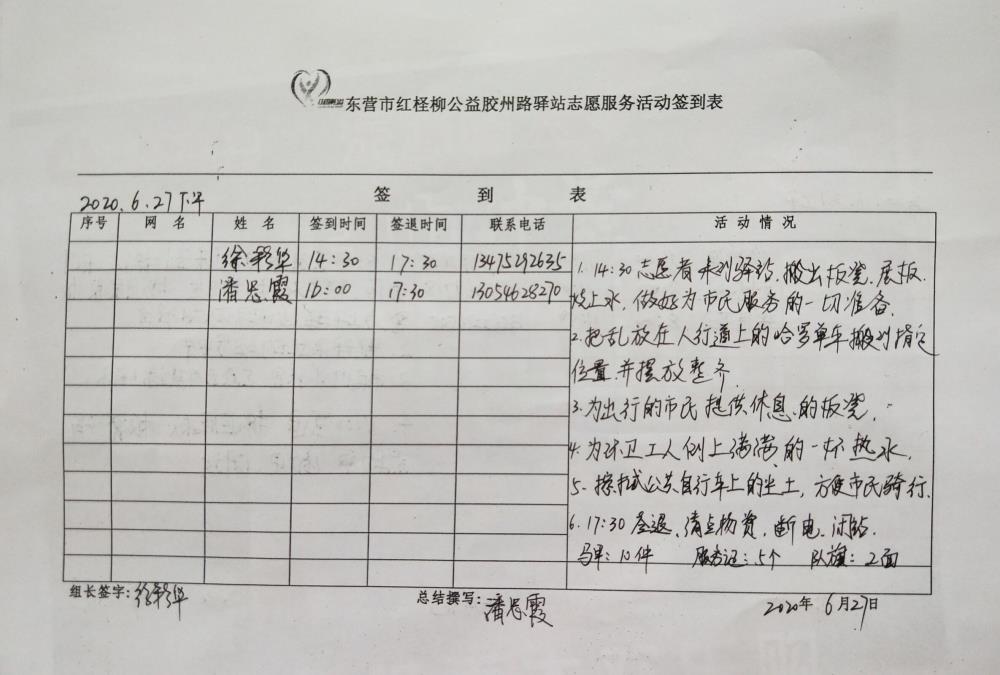 东营市红柽柳公益胶州路驿站志愿服务活动签到表
签到表
2020.6.27下午
序号 网名 姓名 签到时间 签退时间 联系电话 活动情况
徐彩华 14:30 17:30 13475292635
潘思霞 16:00 17:30 13054628270
1. 14:30志愿者来到驿站,搬出板凳、展板、
烧上水,做好为市民服务的一切准备.
2.把乱放在人行道上的哈罗单车搬到指定
位置并摆放整齐
3.为出行的市民提供休息的板凳,
4.为环卫工人倒上满满的一杯热水,
5.擦拭公共自行车上的尘土,方便市民骑行.
6.17:30签退、清点物资,断电、闭站.
马甲:10件 服务记:5个 队旗:2面
组长签字:徐彩华 总结撰写:潘思霞 2020年6月27日